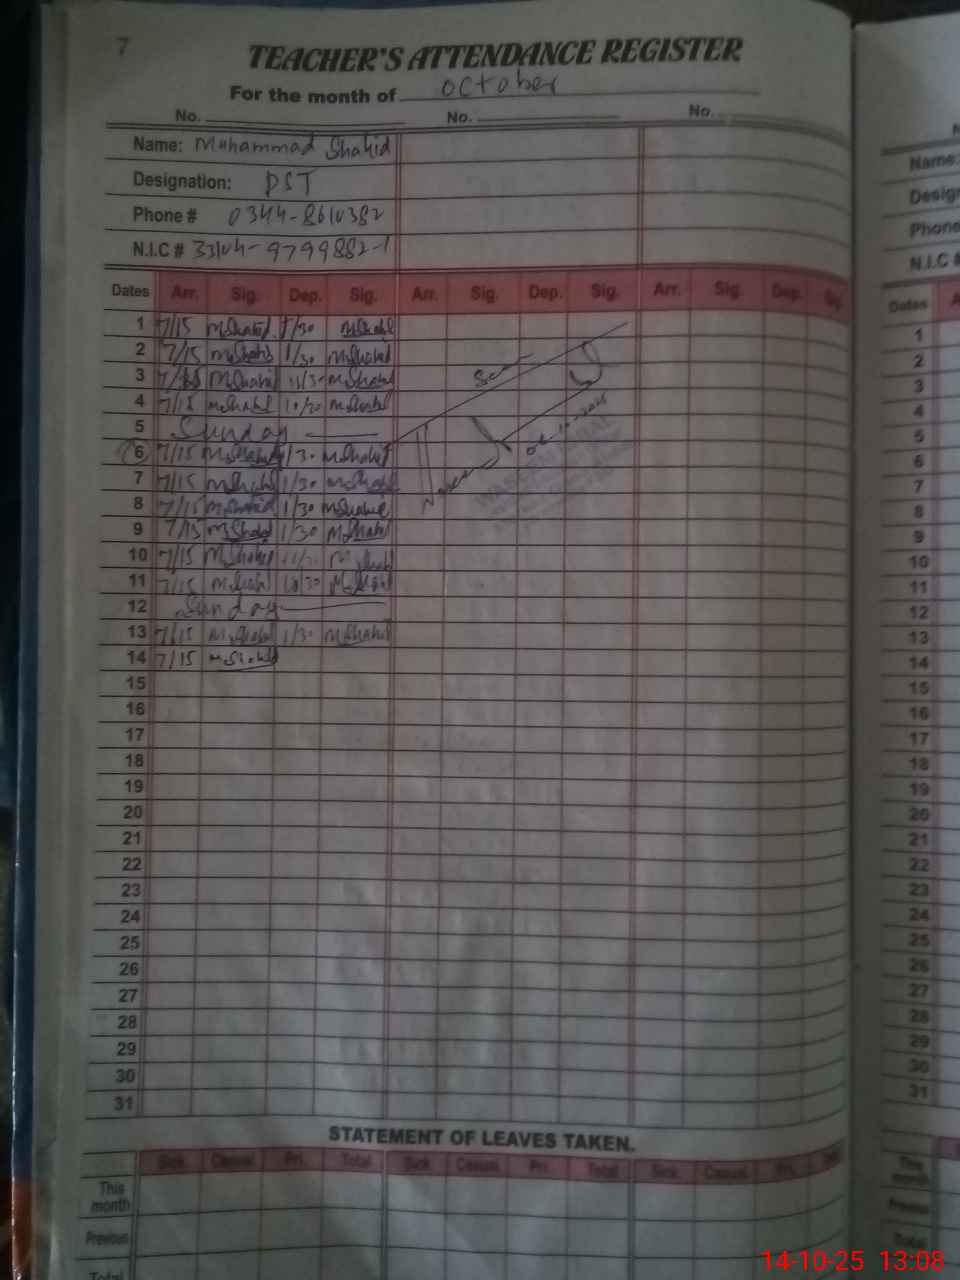 7
TEACHER'S ATTENDANCE REGISTER
For the month of October
No. No. No.
Name: Muhammad Shahid
Designation: PST
Phone # 0344-8610382
N.I.C # 33104-9799882-1
Dates Arr. Sig. Dep. Sig. Arr. Sig. Dep. Sig. Arr. Sig. Dep. Sig.
1 7/15 MShahid 1/30 MShahid
2 7/15 MShahid 1/30 MShahid
3 7/15 MShahid 11/30 MShahid
4 7/15 MShahid 10/30 MShahid
5 Sunday
6 7/15 MShahid 1/30 MShahid
7 7/15 MShahid 1/30 MShahid
8 7/15 MShahid 1/30 MShahid
9 7/15 MShahid 1/30 MShahid
10 7/15 MShahid MShahid
11 7/15 MShahid 10/30 MShahid
12 Sunday
13 7/15 MShahid 1/30 MShahid
14 7/15 MShahid
15
16
17
18
19
20
21
22
23
24
25
26
27
28
29
30
31
STATEMENT OF LEAVES TAKEN.
Sick Casual Pri. Total Sick Casual Pri. Total Sick Casual Pri.
This month
Previous
Total
Name:
Phone
N.I.C #
Dates
1
2
3
4
5
6
7
8
9
10
11
12
13
14
15
16
17
18
19
20
21
22
23
24
25
26
27
28
29
30
31
This month
Previous
Total
14-10-25 13:08